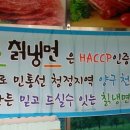 칡냉면 은 HACCP인증
로 민통선 청정지역 양구 천
든 믿고 드실수 있는 칡냉면